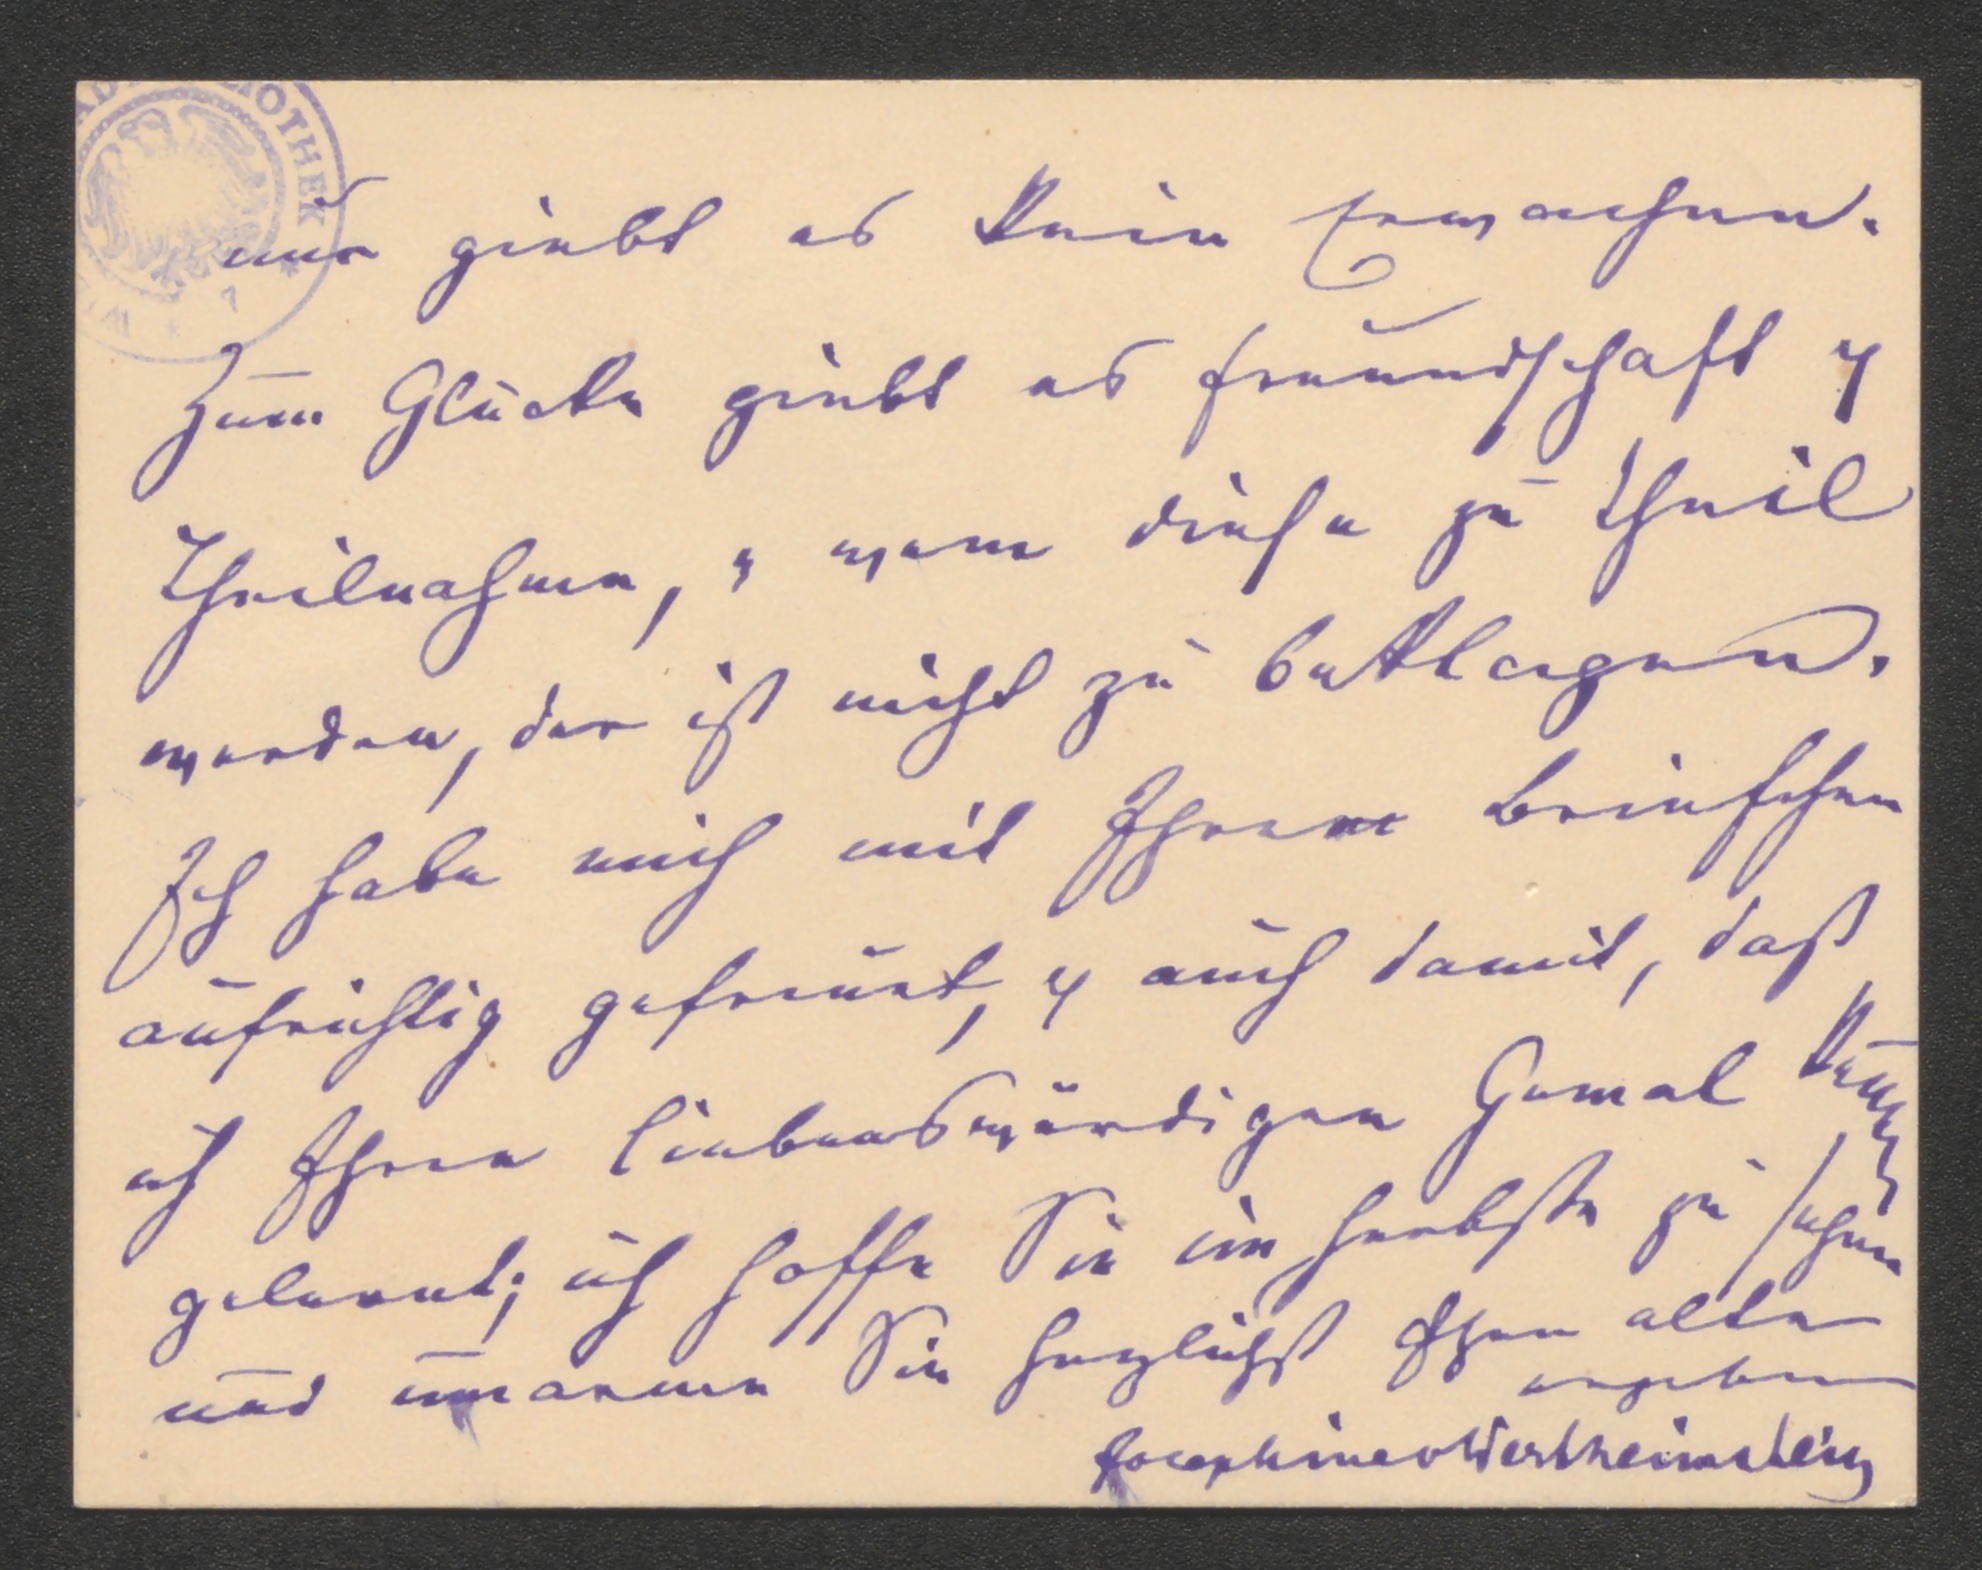 nur giebt es kein Erwachen.
Zum Glücke giebt es Freundschaft &
Theilnahme, & wem diese zu Theil
werden, der ist nicht zu beklagen.
Ich habe mich mit Ihrem Briefchen
aufrichtig gefreut, & auch damit, daß
ich Ihren liebenswürdigen Gemal kennen
gelernt; ich hoffe Sie im Herbste zu sehen
und umarme Sie herzlichst Ihre alte
ergebene
Josephine v Wertheimstein